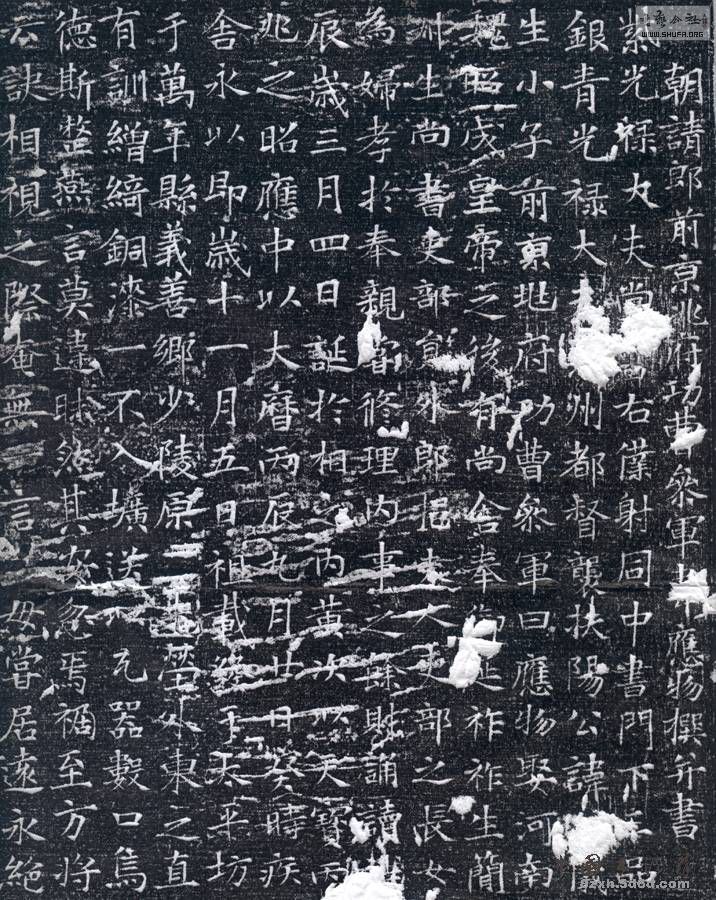 朝請郎前京兆府功曹參軍韋應物撰并書
紫光祿大夫尚書右僕射同中書門下三品
銀青光祿大夫州都督襲扶陽公諱儀
生小子前京兆府功曹參軍曰應物娶河南
魏昭成皇帝之後有尚舍奉御延祚祚生簡
叔生尚書吏部員外郎挹夫人吏部之長女
為婦孝於奉親嘗脩理內事之餘則誦讀
辰歲三月四日誕於相之內黃次以天寶丙
兆之昭應中以大曆丙辰九月廿日癸時疾
舍永以即歲十一月五日祖載終于太平坊
于萬年縣義善鄉少陵原先塋外東之直
有訓繒綺銅漆一不入壙送以瓦器數口烏
德斯整燕言莫違昧然其安忽焉禍至方將
云訣相視之際奄無一言母嘗居遠永絕
WWW.SHUFA.ORG
gzxh.5d6d.com